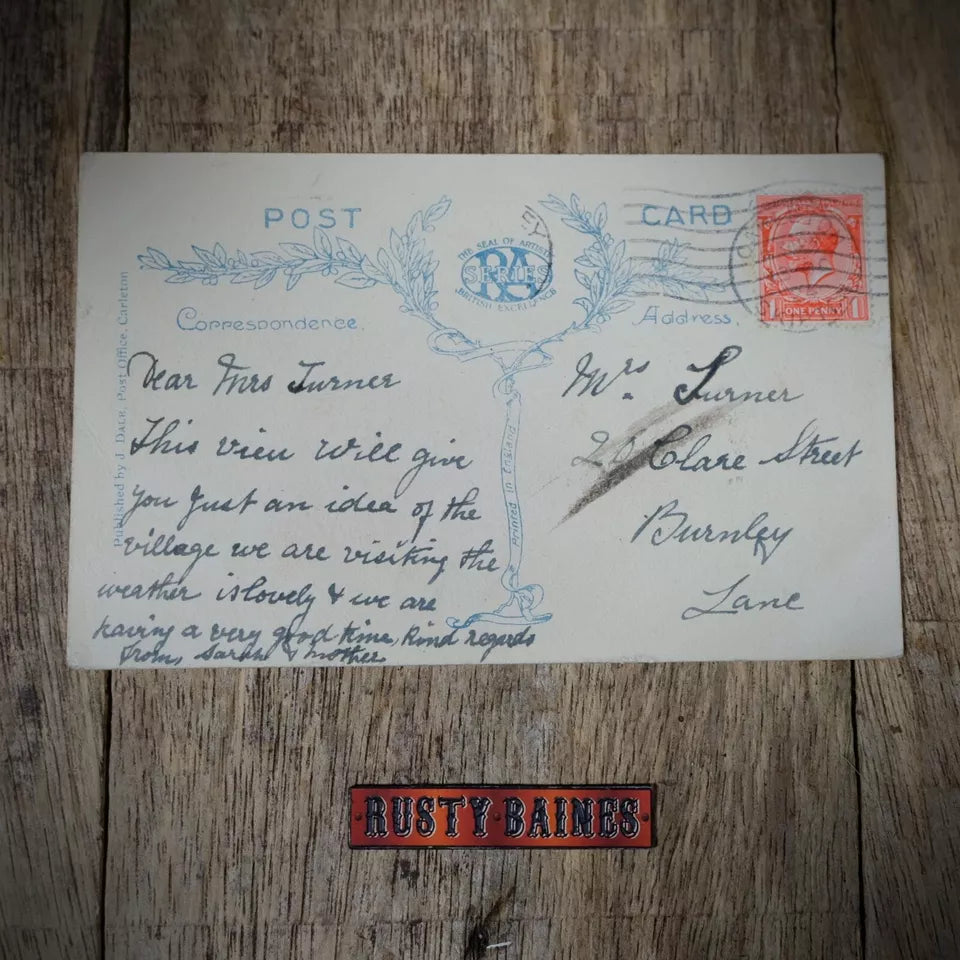 POST CARD
THE SEAL OF ARTISTIC
RA
SERIES
BRITISH EXCELLENCE
Correspondence.
Address.
ONE PENNY
Published by J. DALE, Post Office, Carleton
Printed in England
Dear Mrs Turner
This view will give
you just an idea of the
village we are visiting the
weather is lovely & we are
having a very good time, Kind regards
from Sarah & Mother
Mrs. Turner
Clare Street
Burnley
Lane
RUSTY·BAINES